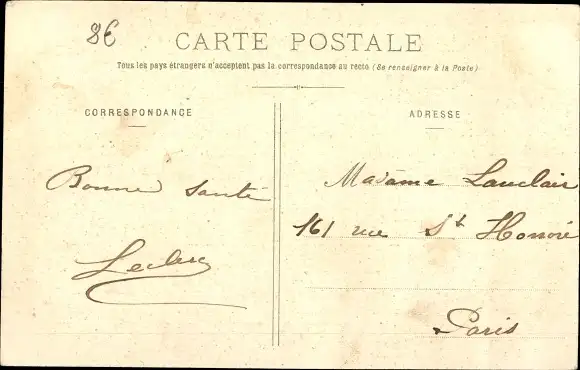 8€
CARTE POSTALE
Tous les pays étrangers n'acceptent pas la correspondance au recto (Se renseigner à la Poste)
CORRESPONDANCE
ADRESSE
Bonne santé
Leclerc
Madame Lauclair
161 rue St Honoré
Paris